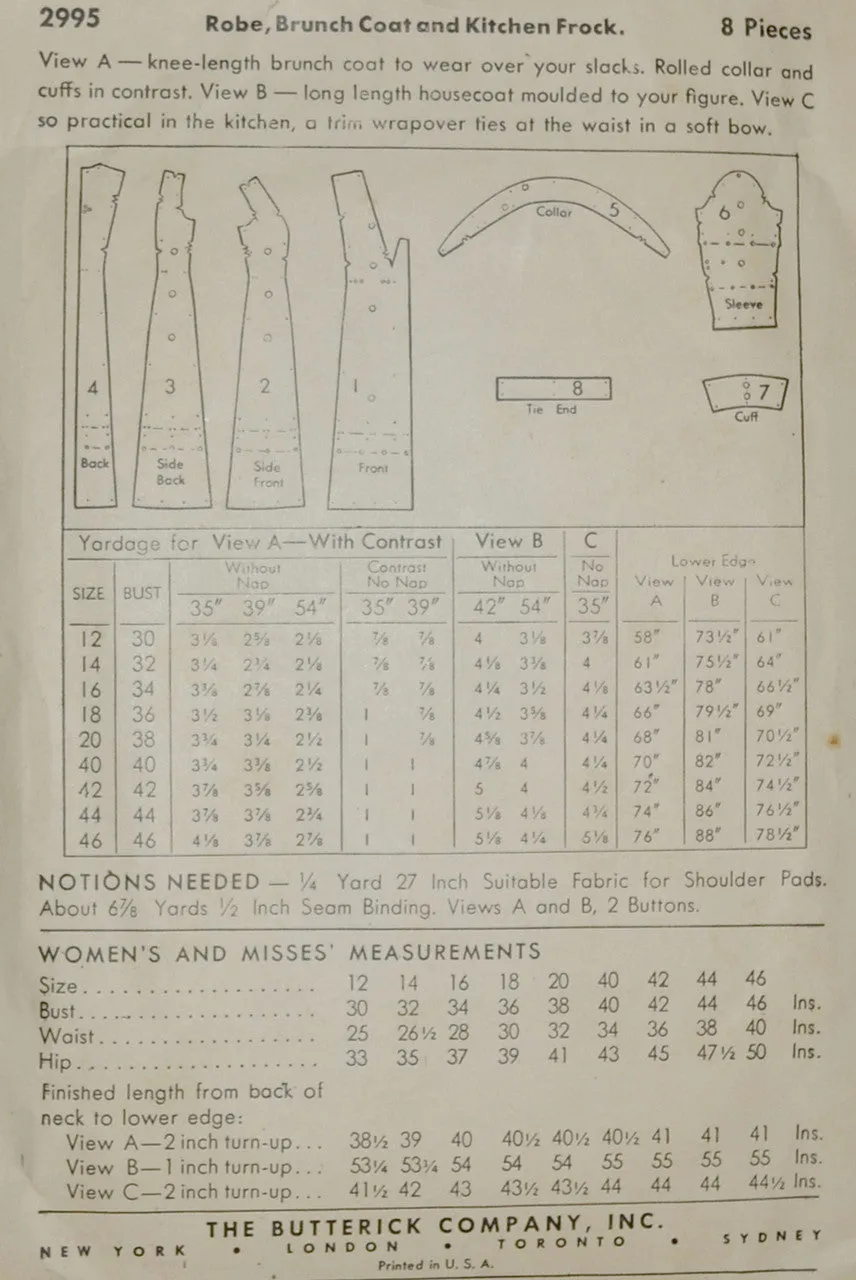 2995 Robe, Brunch Coat and Kitchen Frock. 8 Pieces
View A — knee-length brunch coat to wear over your slacks. Rolled collar and
cuffs in contrast. View B — long length housecoat moulded to your figure. View C
so practical in the kitchen, a trim wrapover ties at the waist in a soft bow.
4 Back
3 Side Back
2 Side Front
1 Front
Collar 5
6 Sleeve
8
Tie End
7
Cuff
Yardage for View A—With Contrast View B C Lower Edge
Without Nap Contrast No Nap Without Nap No Nap View A View B View C
SIZE BUST 35" 39" 54" 35" 39" 42" 54" 35"
12 30 3⅛ 2⅝ 2⅛ ⅞ ⅞ 4 3⅛ 3⅞ 58" 73½" 61"
14 32 3¼ 2¾ 2⅛ ⅞ ⅞ 4⅛ 3⅜ 4 61" 75½" 64"
16 34 3⅜ 2⅞ 2¼ ⅞ ⅞ 4¼ 3½ 4⅛ 63½" 78" 66½"
18 36 3½ 3⅛ 2⅜ 1 ⅞ 4½ 3⅝ 4¼ 66" 79½" 69"
20 38 3¾ 3¼ 2½ 1 ⅞ 4⅝ 3⅞ 4¼ 68" 81" 70½"
40 40 3¾ 3⅜ 2½ 1 1 4⅞ 4 4¼ 70" 82" 72½"
42 42 3⅞ 3⅝ 2⅝ 1 1 5 4 4½ 72" 84" 74½"
44 44 3⅞ 3⅞ 2¾ 1 1 5⅛ 4⅛ 4¾ 74" 86" 76½"
46 46 4⅛ 3⅞ 2⅞ 1 1 5⅛ 4¼ 5⅛ 76" 88" 78½"
NOTIONS NEEDED — ¼ Yard 27 Inch Suitable Fabric for Shoulder Pads.
About 6⅞ Yards ½ Inch Seam Binding. Views A and B, 2 Buttons.
WOMEN'S AND MISSES' MEASUREMENTS
Size.................... 12 14 16 18 20 40 42 44 46
Bust.................... 30 32 34 36 38 40 42 44 46 Ins.
Waist.................. 25 26½ 28 30 32 34 36 38 40 Ins.
Hip.................... 33 35 37 39 41 43 45 47½ 50 Ins.
Finished length from back of
neck to lower edge:
View A—2 inch turn-up... 38½ 39 40 40½ 40½ 40½ 41 41 41 Ins.
View B—1 inch turn-up... 53¼ 53¼ 54 54 54 55 55 55 55 Ins.
View C—2 inch turn-up... 41½ 42 43 43½ 43½ 44 44 44 44½ Ins.
THE BUTTERICK COMPANY, INC.
NEW YORK • LONDON • TORONTO • SYDNEY
Printed in U. S. A.